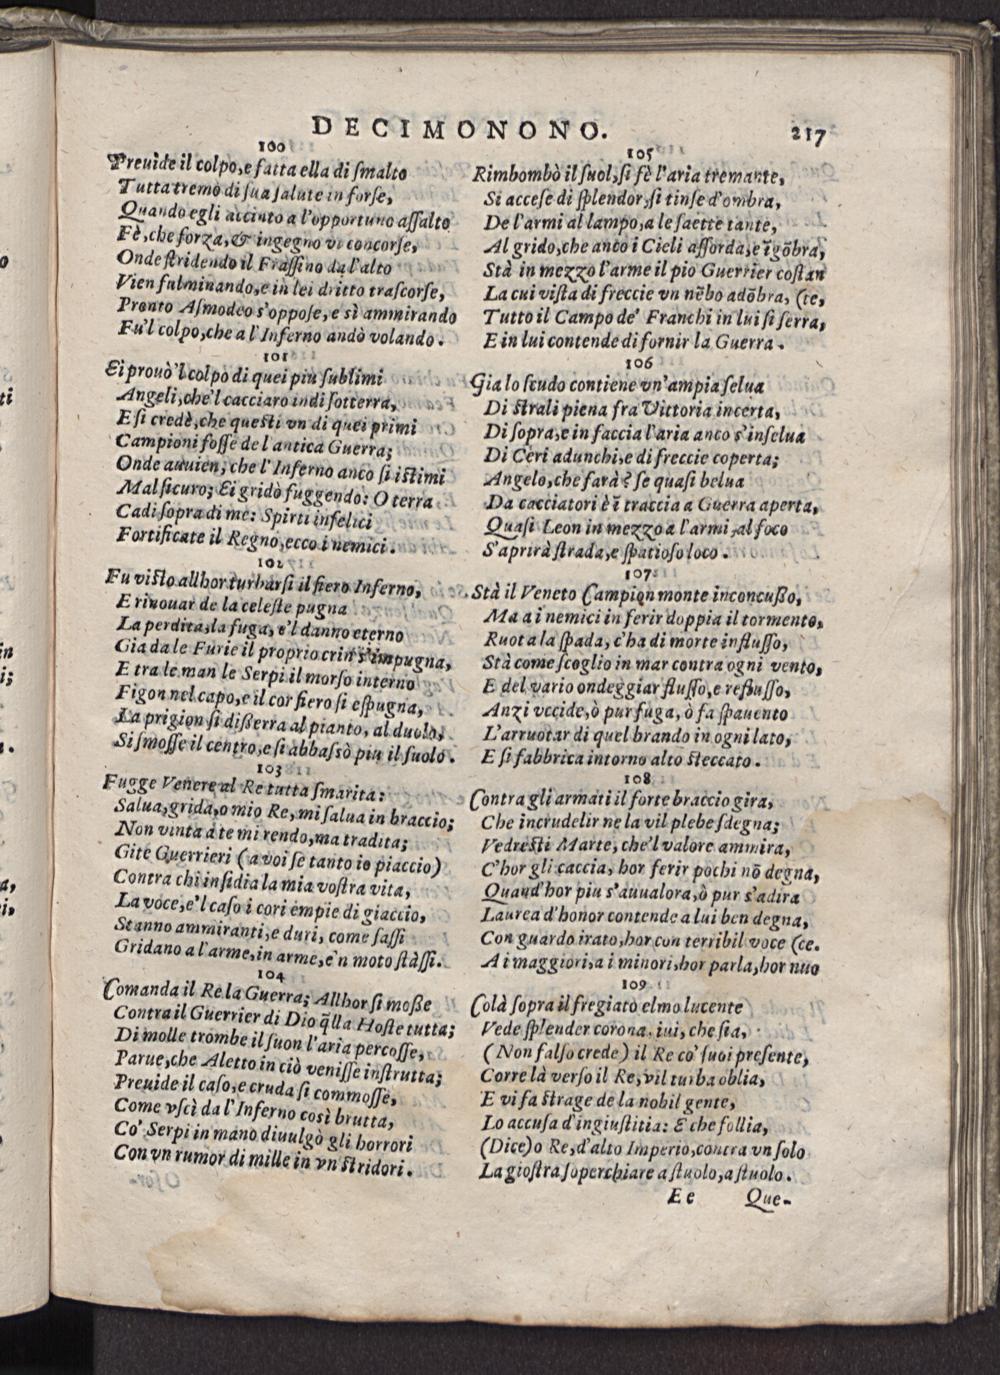 DECIMONONO. 217
100
Preuide il colpo, e fatta ella di ſmalto
Tutta tremò di ſua ſalute in forſe,
Quando egli accinto a l'opportuno aſſalto
Fè, che forza, & ingegno vi concorſe,
Onde ſtridendo il Fraſſino da l'alto
Vien fulminando, e in lei dritto traſcorſe,
Pronto Aſmodeo s'oppoſe, e sì ammirando
Fu'l colpo, che a l'Inferno andò volando.
101
Ei prouò 'l colpo di quei piu ſublimi
Angeli, che'l cacciaro indi ſotterra,
E ſi credè, che queſti vn di quei primi
Campioni foſſe de l'antica Guerra;
Onde auuien, che l'Inferno anco ſi iſtimi
Mal ſicuro; Ei gridò fuggendo: O terra
Cadi ſopra di me: Spirti infelici
Fortificate il Regno, ecco i nemici.
102
Fu viſto allhor turbarſi il fiero Inferno,
E rinouar de la celeſte pugna
La perdita, la fuga, e'l danno eterno
Gia da le Furie il proprio crin s'impugna,
E tra le man le Serpi il morſo interno
Figon nel capo, e il cor fiero ſi eſpugna,
La prigion ſi dißerra al pianto, al duolo,
Si ſmoſſe il centro, e ſi abbaſsò piu il ſuolo.
103
Fugge Venere al Re tutta ſmarita:
Salua, grida, o mio Re, mi ſalua in braccio;
Non vinta a te mi rendo, ma tradita;
Gite Guerrieri (a voi ſe tanto io piaccio)
Contra chi inſidia la mia voſtra vita,
La voce, e'l caſo i cori empie di giaccio,
Stanno ammiranti, e duri, come ſaſſi
Gridano a l'arme, in arme, e'n moto ſtàſſi.
104
Comanda il Re la Guerra; Allhor ſi moße
Contra il Guerrier di Dio q̃lla Hoſte tutta;
Di molle trombe il ſuon l'aria percoſſe,
Parue, che Aletto in ciò veniſſe inſtrutta;
Preuide il caſo, e cruda ſi commoſſe,
Come vſcì da l'Inferno così brutta,
Co' Serpi in mano diuulgò gli horrori
Con vn rumor di mille in vn ſtridori.
105
Rimbombò il ſuol, ſi fè l'aria tremante,
Si acceſe di ſplendor, ſi tinſe d'ombra,
De l'armi al lampo, a le ſaette tante,
Al grido, che anco i Cieli aſſorda, e ĩgõbra,
Stà in mezzo l'arme il pio Guerrier coſtan
La cui viſta di freccie vn nẽbo adõbra, (te,
Tutto il Campo de' Franchi in lui ſi ſerra,
E in lui contende di fornir la Guerra.
106
Gia lo ſcudo contiene vn'ampia ſelua
Di ſtrali piena fra Vittoria incerta,
Di ſopra, e in faccia l'aria anco s'inſelua
Di Ceri adunchi, e di freccie coperta;
Angelo, che farà? ſe quaſi belua
Da cacciatori è ĩ traccia a Guerra aperta,
Quaſi Leon in mezzo a l'armi, al foco
S'aprirà ſtrada, e ſpatioſo loco.
107
Stà il Veneto Campion monte inconcußo,
Ma a i nemici in ferir doppia il tormento,
Ruota la ſpada, c'ha di morte influſſo,
Stà come ſcoglio in mar contra ogni vento,
E del vario ondeggiar fluſſo, e refluſſo,
Anzi vccide, ò pur fuga, ò fa ſpauento
L'arruotar di quel brando in ogni lato,
E ſi fabbrica intorno alto ſteccato.
108
Contra gli armati il forte braccio gira,
Che incrudelir ne la vil plebe ſdegna;
Vedreſti Marte, che'l valore ammira,
C'hor gli caccia, hor ferir pochi nõ degna,
Quand'hor piu s'auualora, ò pur s'adira
Laurea d'honor contende a lui ben degna,
Con guardo irato, hor con terribil voce (ce.
A i maggiori, a i minori, hor parla, hor nuo
109
Colà ſopra il fregiato elmo lucente
Vede ſplender corona, iui, che ſia,
(Non falſo crede) il Re co' ſuoi preſente,
Corre là verſo il Re, vil turba oblia,
E vi fa ſtrage de la nobil gente,
Lo accuſa d'ingiuſtitia: E che follia,
(Dice) o Re, d'alto Imperio, contra vn ſolo
La gioſtra ſoperchiare a ſtuolo, a ſtuolo.
Ee Que-